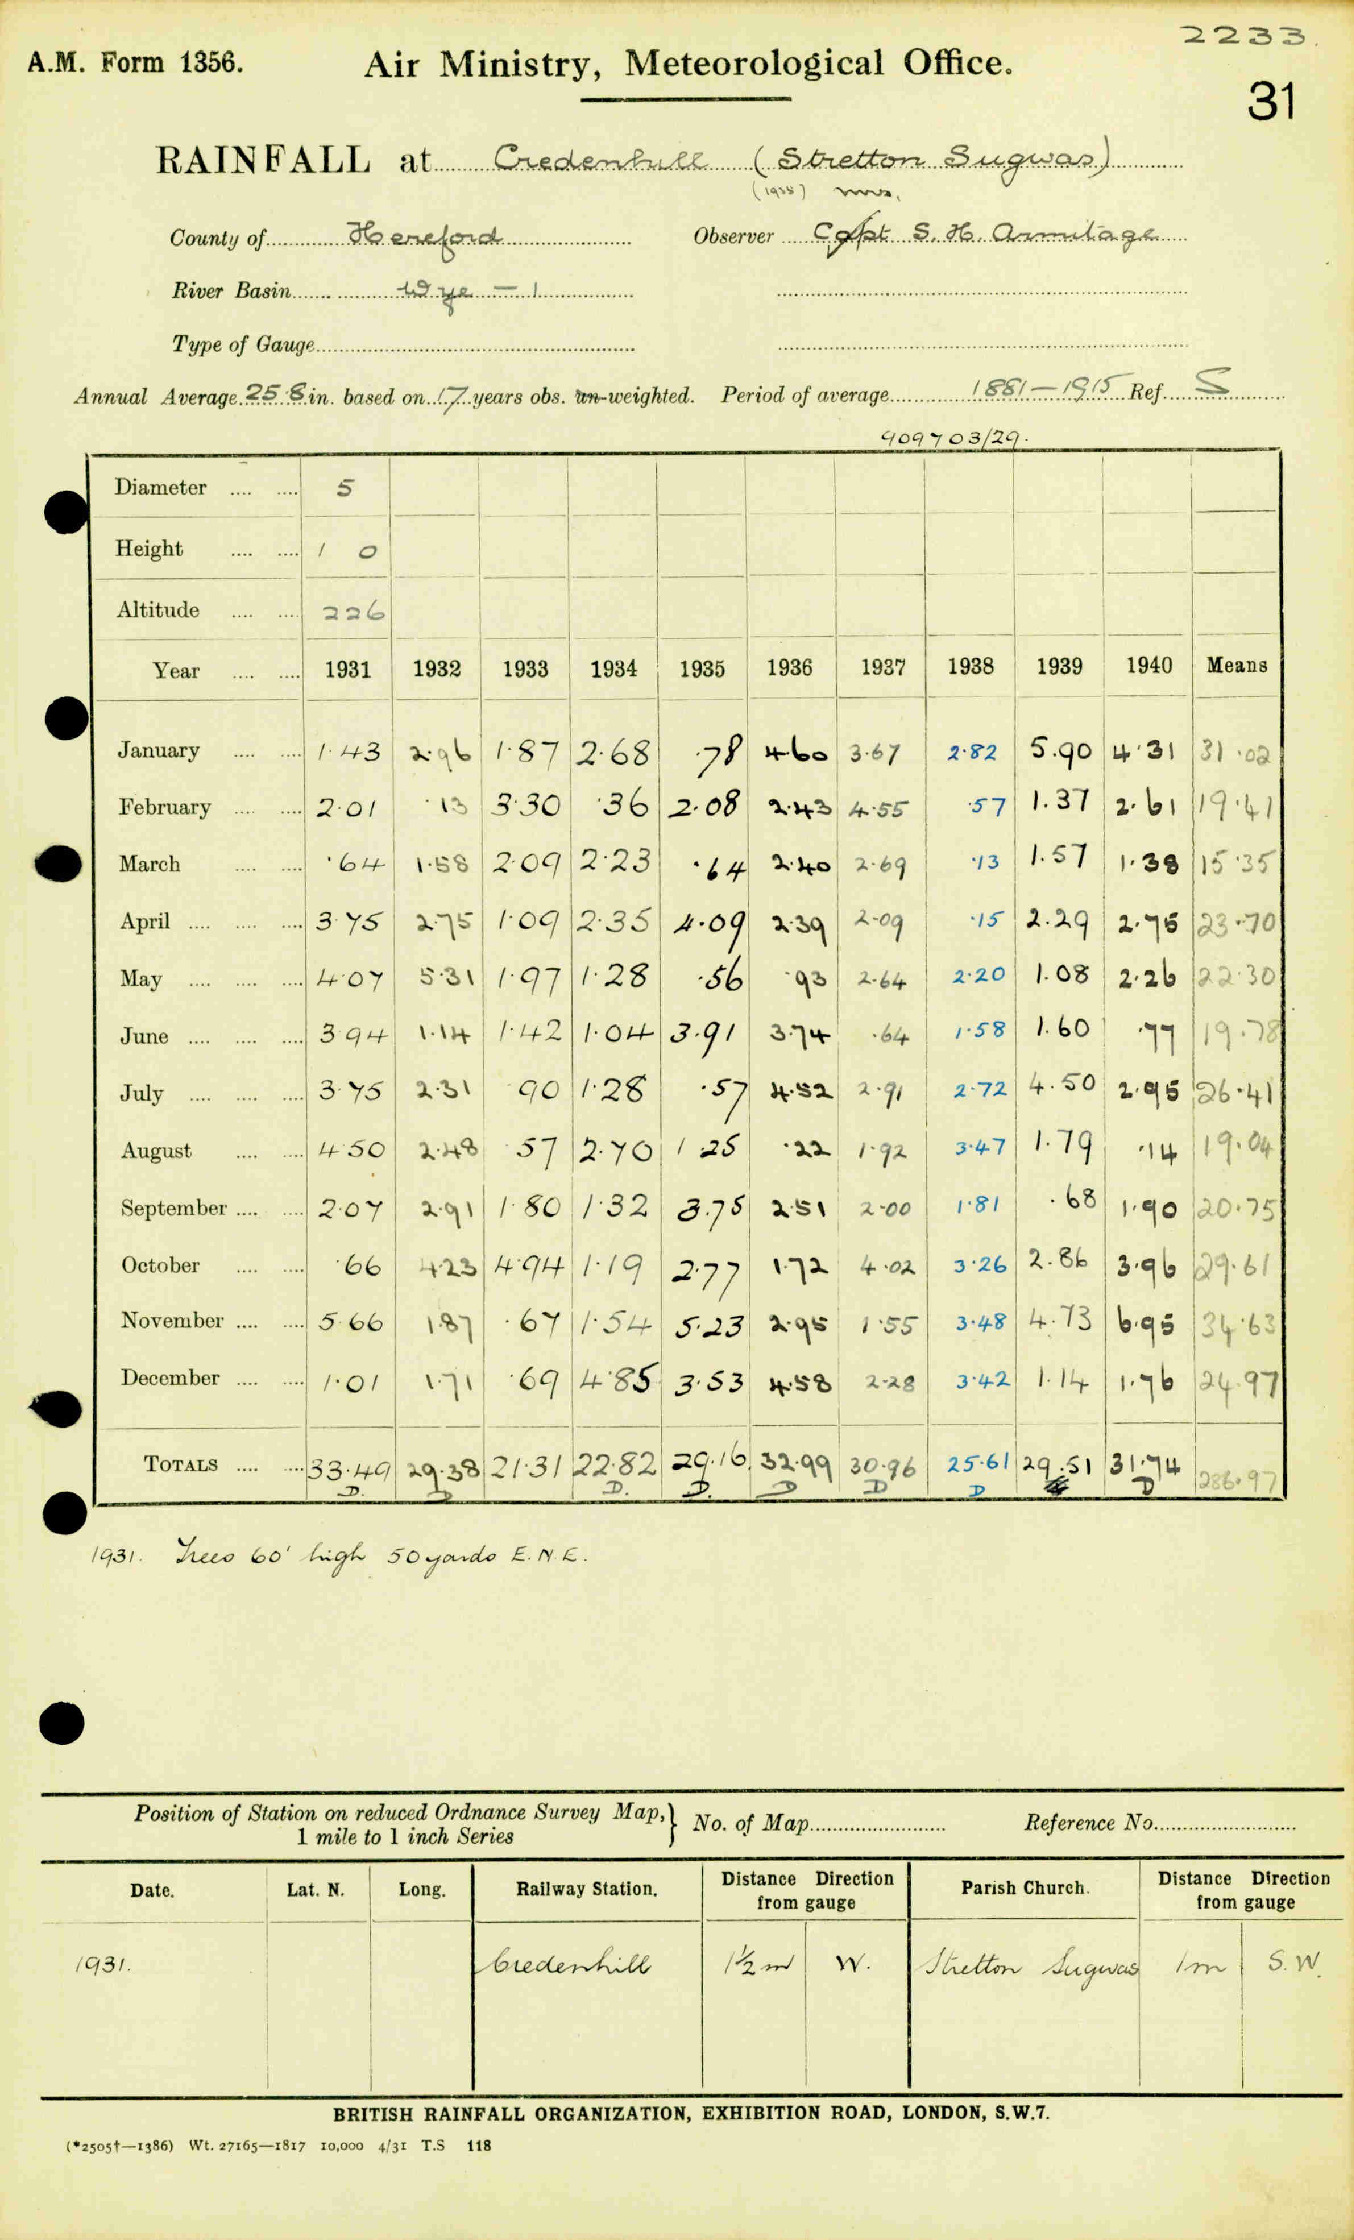 2233
A.M. Form 1356. Air Ministry, Meteorological Office.
31
RAINFALL at Credenhill (Stretton Sugwas)
(1938) Mrs.
County of Hereford Observer Capt S. H. Armitage
River Basin Wye - 1
Type of Gauge
Annual Average 25.8 in. based on 17 years obs. un-weighted. Period of average 1881-1915 Ref. S
909703/29.
Diameter .... .... 5
Height .... .... 1 0
Altitude .... .... 226
Year .... .... 1931 1932 1933 1934 1935 1936 1937 1938 1939 1940 Means
January .... .... 1.43 2.96 1.87 2.68 .78 4.60 3.67 2.82 5.90 4.31 31.02
February .... .... 2.01 .13 3.30 .36 2.08 2.43 4.55 .57 1.37 2.61 19.41
March .... .... .64 1.58 2.09 2.23 .64 2.40 2.69 .13 1.57 1.38 15.35
April .... .... .... 3.75 2.75 1.09 2.35 4.09 2.39 2.09 .15 2.29 2.75 23.70
May .... .... .... 4.07 5.31 1.97 1.28 .56 .93 2.64 2.20 1.08 2.26 22.30
June .... .... .... 3.94 1.14 1.42 1.04 3.91 3.74 .64 1.58 1.60 .77 19.78
July .... .... .... 3.75 2.31 .90 1.28 .57 4.52 2.91 2.72 4.50 2.95 26.41
August .... .... 4.50 2.48 .57 2.70 1.25 .22 1.92 3.47 1.79 .14 19.04
September .... .... 2.07 2.91 1.80 1.32 3.75 2.51 2.00 1.81 .68 1.90 20.75
October .... .... .66 4.23 4.94 1.19 2.77 1.72 4.02 3.26 2.86 3.96 29.61
November .... .... 5.66 1.87 .67 1.54 5.23 2.95 1.55 3.48 4.73 6.95 34.63
December .... .... 1.01 1.71 .69 4.85 3.53 4.58 2.28 3.42 1.14 1.76 24.97
TOTALS .... .... 33.49 29.38 21.31 22.82 29.16 32.99 30.96 25.61 29.51 31.74 286.97
D. D D. D. D D D D
1931. Trees 60' high 50 yards E.N.E.
Position of Station on reduced Ordnance Survey Map,} No. of Map Reference No.
1 mile to 1 inch Series
Date. Lat. N. Long. Railway Station. Distance Direction from gauge Parish Church. Distance Direction from gauge
1931. Credenhill 1½ m W. Stretton Sugwas 1m S.W.
BRITISH RAINFALL ORGANIZATION, EXHIBITION ROAD, LONDON, S.W.7.
(*2505†—1386) Wt. 27165—1817 10,000 4/31 T.S 118